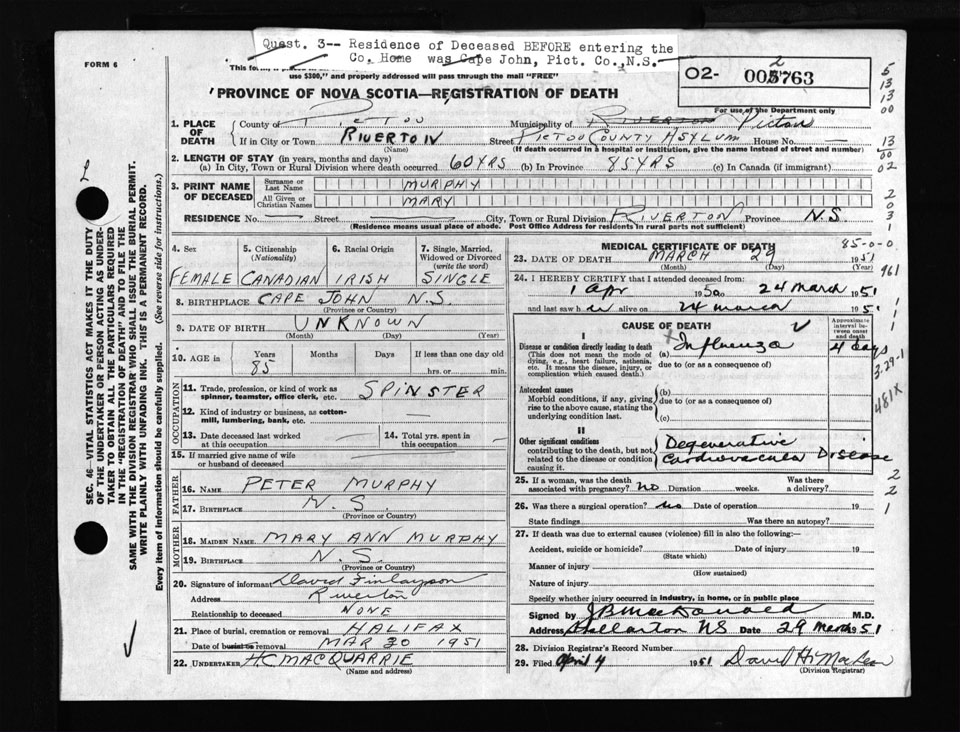 Quest. 3-- Residence of Deceased BEFORE entering the
Co. Home was Cape John, Pict. Co., N.S.
FORM 6
use $300," and properly addressed will pass through the mail "FREE"
PROVINCE OF NOVA SCOTIA—REGISTRATION OF DEATH
02- 003763
2
For use of the Department only
1. PLACE OF DEATH
County of Pictou Municipality of Riverton Pictou
If in City or Town RIVERTON Street PICTOU COUNTY ASYLUM House No.
(Name) (If death occurred in a hospital or institution, give the name instead of street and number)
2. LENGTH OF STAY (in years, months and days)
(a) In City, Town or Rural Division where death occurred 60 YRS (b) In Province 85 YRS (c) In Canada (if immigrant)
3. PRINT NAME OF DECEASED
Surname or Last Name MURPHY
All Given or Christian Names MARY
RESIDENCE No. — Street — City, Town or Rural Division RIVERTON Province N.S.
(Residence means usual place of abode. Post Office Address for residents in rural parts not sufficient)
4. Sex 5. Citizenship (Nationality) 6. Racial Origin 7. Single, Married, Widowed or Divorced (write the word)
FEMALE CANADIAN IRISH SINGLE
8. BIRTHPLACE CAPE JOHN N.S.
(Province or Country)
9. DATE OF BIRTH UNKNOWN
(Month) (Day) (Year)
10. AGE in Years Months Days If less than one day old
85 hrs. or min.
OCCUPATION
11. Trade, profession, or kind of work as spinner, teamster, office clerk, etc. SPINSTER
12. Kind of industry or business, as cotton-mill, lumbering, bank, etc. —
13. Date deceased last worked at this occupation — 14. Total yrs. spent in this occupation —
15. If married give name of wife or husband of deceased
FATHER
16. NAME PETER MURPHY
17. BIRTHPLACE N.S.
(Province or Country)
MOTHER
18. MAIDEN NAME MARY ANN MURPHY
19. BIRTHPLACE N.S.
(Province or Country)
20. Signature of informant David Finlayson
Address Riverton
Relationship to deceased NONE
21. Place of burial, cremation or removal HALIFAX
Date of burial or removal MAR 30 1951
22. UNDERTAKER H.C. MACQUARRIE
(Name and address)
MEDICAL CERTIFICATE OF DEATH 85-0-0
23. DATE OF DEATH MARCH 29 1951
(Month) (Day) (Year)
24. I HEREBY CERTIFY that I attended deceased from:
1 Apr 1950 to 24 March 1951
and last saw h er alive on 24 March 1951
CAUSE OF DEATH
Approximate interval between onset and death
I
Disease or condition directly leading to death (a) Influenza 4 days
(This does not mean the mode of dying, e.g., heart failure, asthenia, etc. It means the disease, injury, or complication which caused death.)
due to (or as a consequence of)
Antecedent causes (b)
Morbid conditions, if any, giving rise to the above cause, stating the underlying condition last.
due to (or as a consequence of)
(c)
II
Other significant conditions Degenerative
contributing to the death, but not related to the disease or condition causing it. Cardiovascular Disease
25. If a woman, was the death associated with pregnancy? No Duration weeks. Was there a delivery?
26. Was there a surgical operation? no Date of operation 19
State findings Was there an autopsy?
27. If death was due to external causes (violence) fill in also the following:—
Accident, suicide or homicide? Date of injury 19
(State which)
Manner of injury
(How sustained)
Nature of injury
Specify whether injury occurred in industry, in home, or in public place
Signed by J B MacDonald M.D.
Address Stellarton NS Date 29 March 1951
28. Division Registrar's Record Number
29. Filed April 4 1951 David H.
(Division Registrar)
SEC. 46—VITAL STATISTICS ACT MAKES IT THE DUTY
OF THE UNDERTAKER OR PERSON ACTING AS UNDER-
TAKER TO OBTAIN ALL THE PARTICULARS REQUIRED
IN THE "REGISTRATION OF DEATH" AND TO FILE THE
SAME WITH THE DIVISION REGISTRAR WHO SHALL ISSUE THE BURIAL PERMIT.
WRITE PLAINLY WITH UNFADING INK. THIS IS A PERMANENT RECORD.
Every item of information should be carefully supplied. (See reverse side for instructions.)
5
13
13
00
13
00
02
2
0
3
1
961
1
1
3-29-1
481X
2
2
1